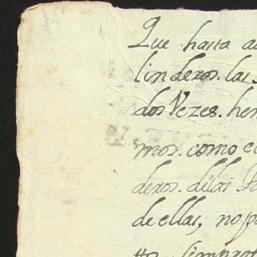 Que hasta a
linderos. las
dos Vezes. her
mos. como e
deros. delas
de ellas, no p